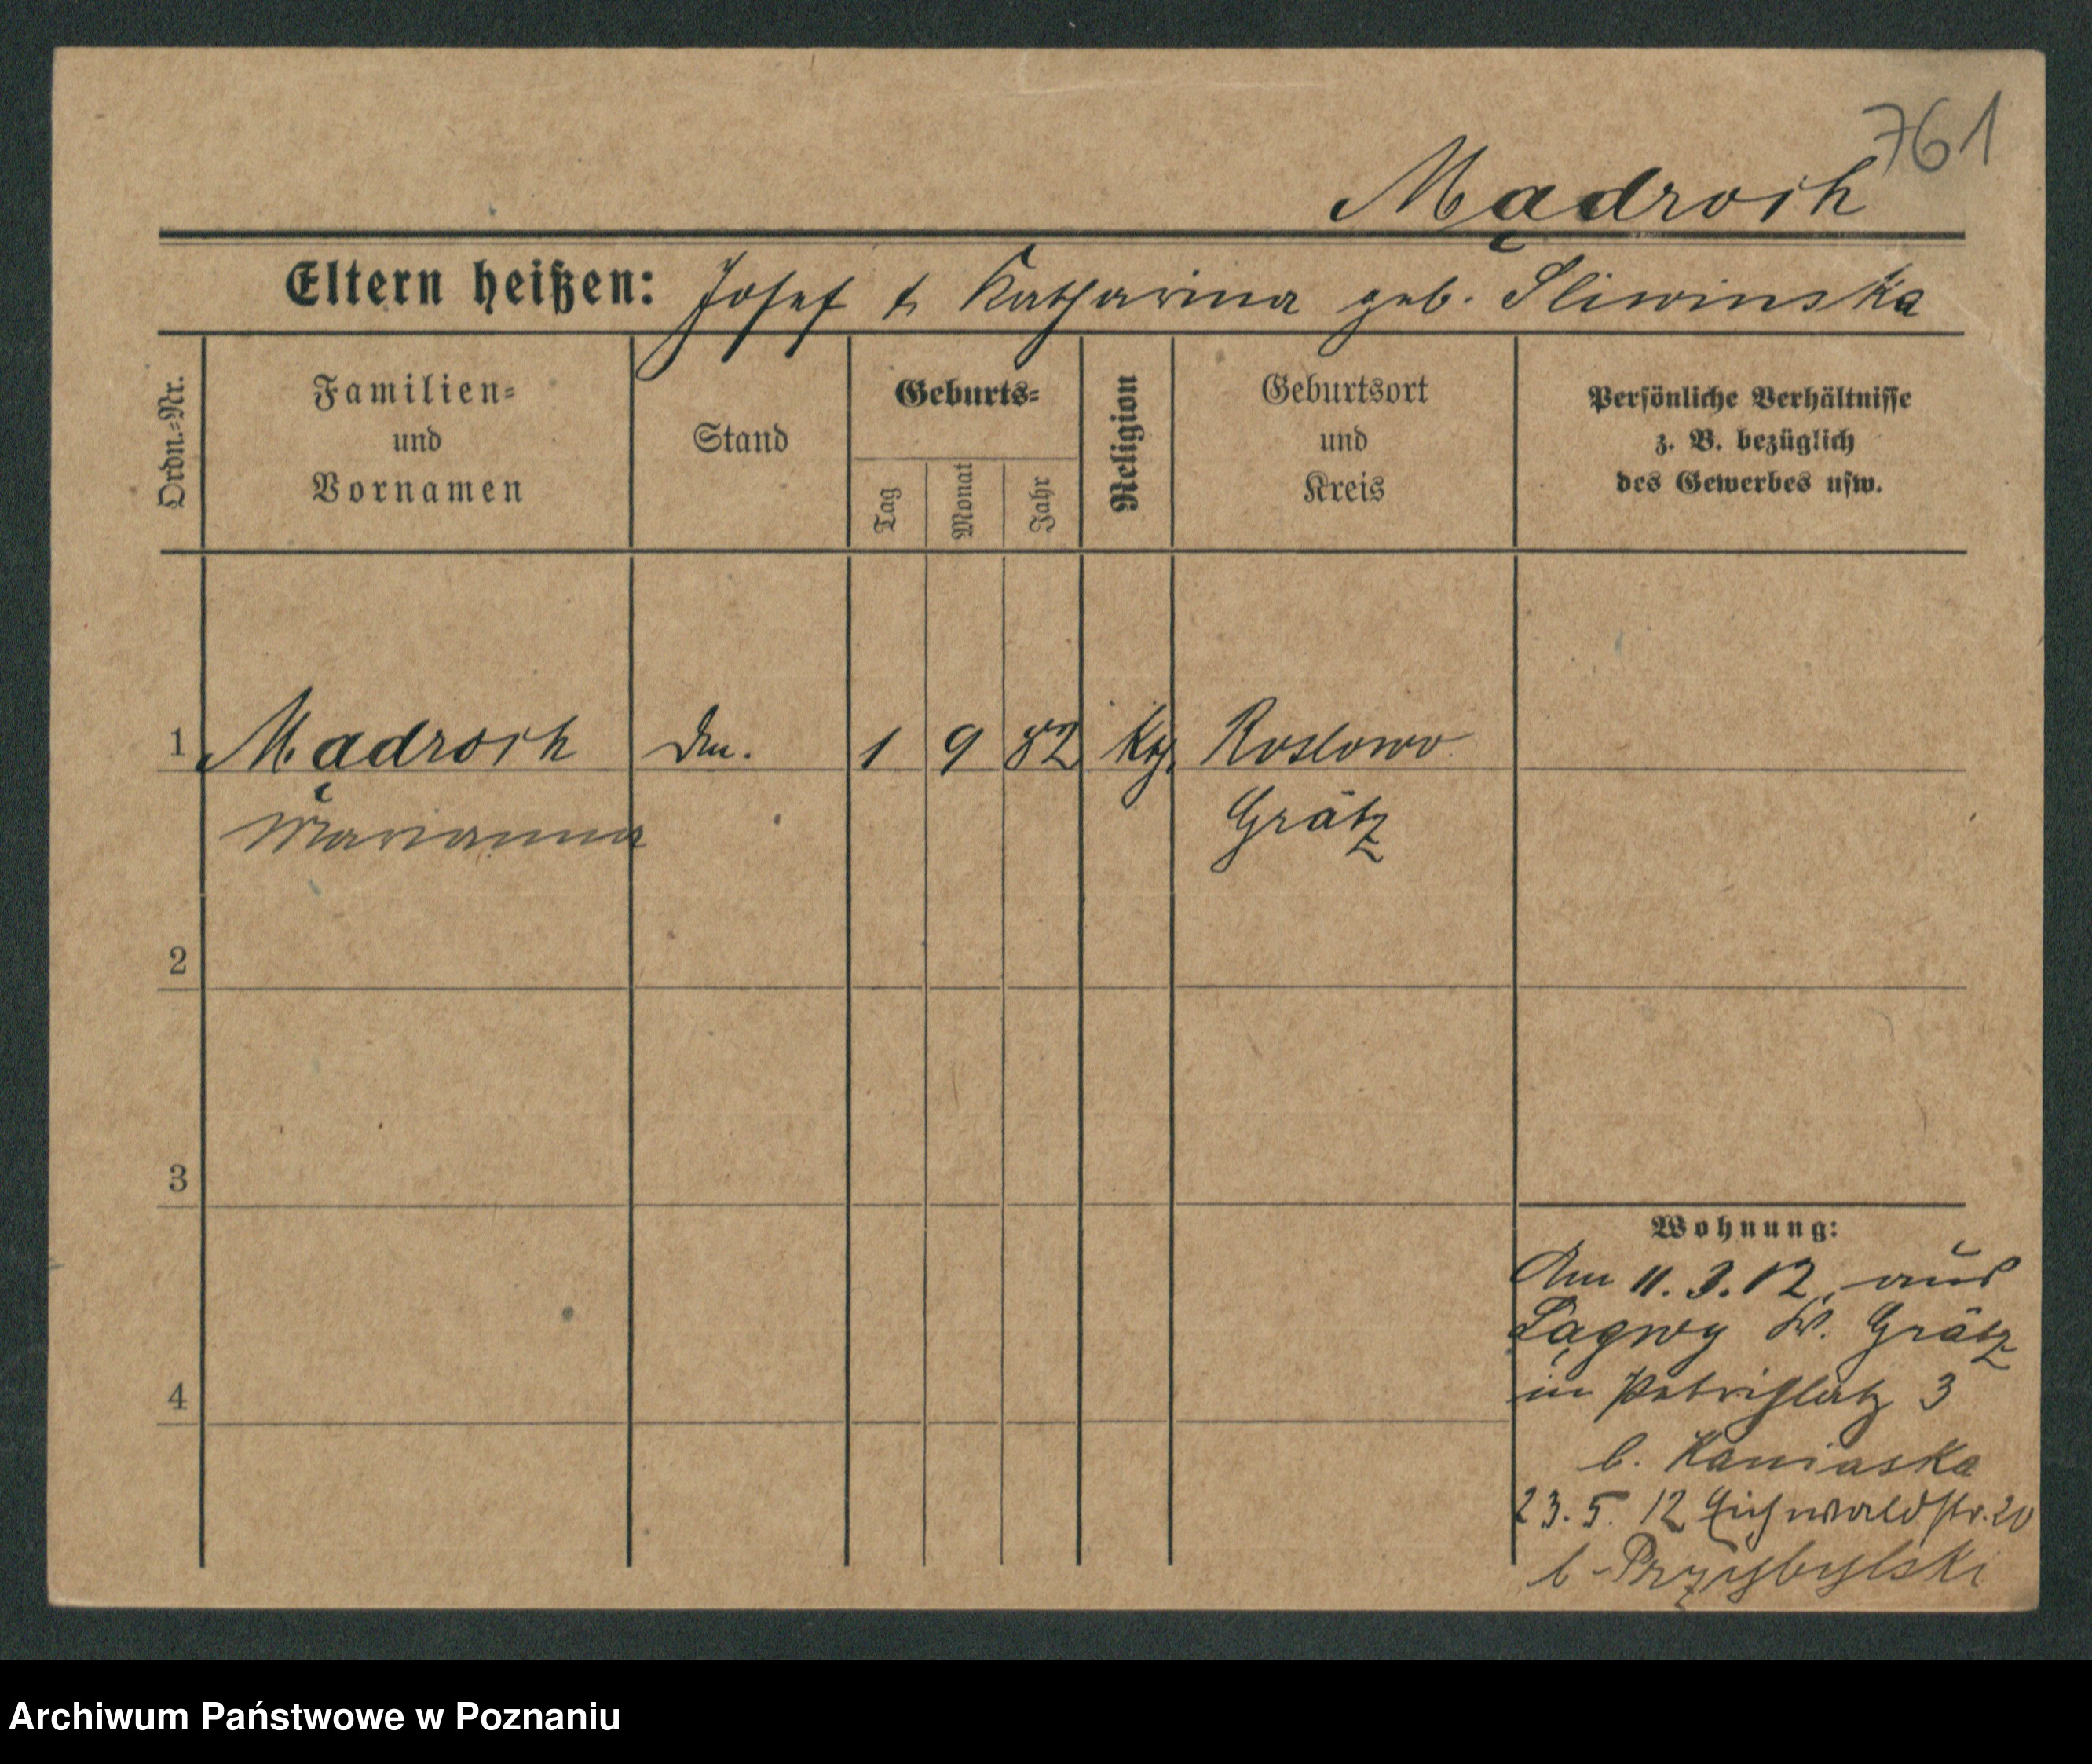 761
Mądrosch
Eltern heißen: Josef & Katharina geb. Sliwinska
Ordn.-Nr.
Familien-
und
Vornamen
Stand
Geburts-
Tag
Monat
Jahr
Religion
Geburtsort
und
Kreis
Persönliche Verhältnisse
z. B. bezüglich
des Gewerbes usw.
1 Mądrosch 1 9 82 kth. Roslowo
Marianna Grätz
2
3
4
Wohnung:
Am 11.3.12, aus
Łagwy Kr. Grätz
in Petriplatz 3
b. Kaniaska
23.5.12 Eichwaldstr. 20
b. Przybylski
Archiwum Państwowe w Poznaniu